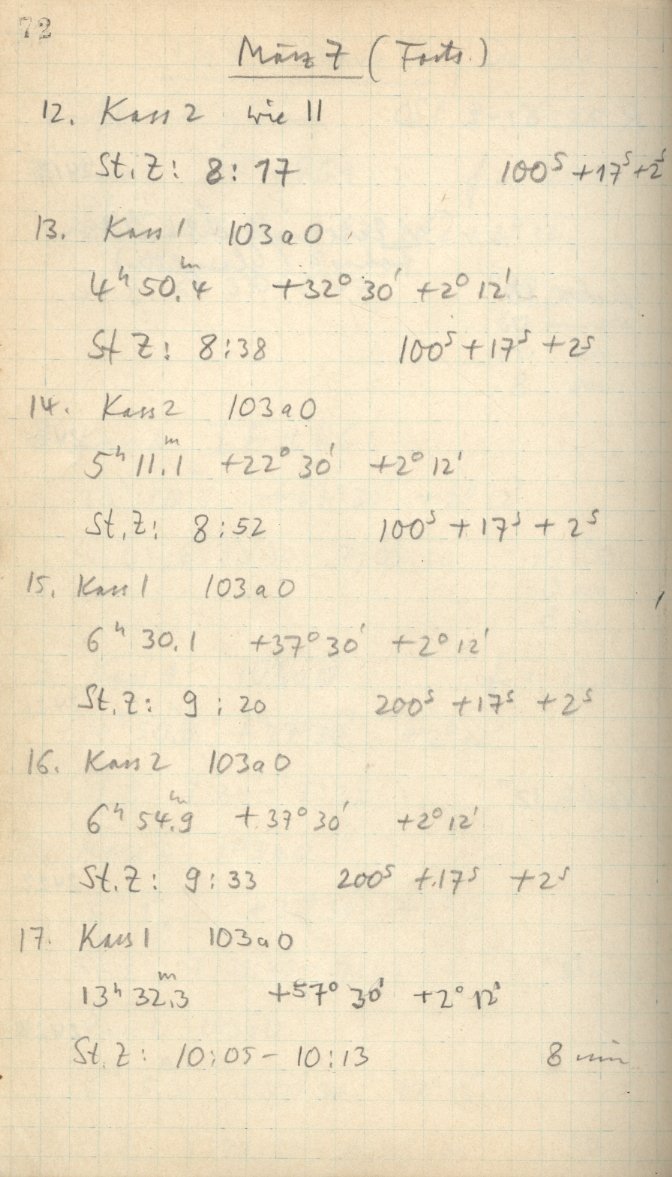 72
März 7 (Forts.)
12. Kass 2 wie 11
St.Z: 8:17 100ˢ +17ˢ +2ˢ
13. Kass 1 103a0
4ʰ 50.ᵐ4 +32° 30' +2° 12'
St Z: 8:38 100ˢ +17ˢ +2ˢ
14. Kass 2 103a0
5ʰ 11.ᵐ1 +22° 30' +2° 12'
St.Z: 8:52 100ˢ +17ˢ + 2ˢ
15. Kass 1 103a0
6ʰ 30.1 +37° 30' +2° 12'
St.Z: 9:20 200ˢ +17ˢ +2ˢ
16. Kass 2 103a0
6ʰ 54.ᵐ9 +37° 30' +2° 12'
St.Z: 9:33 200ˢ +17ˢ +2ˢ
17. Kass 1 103a0
13ʰ 32.ᵐ3 +57° 30' +2° 12'
St.Z: 10:05 - 10:13 8 min